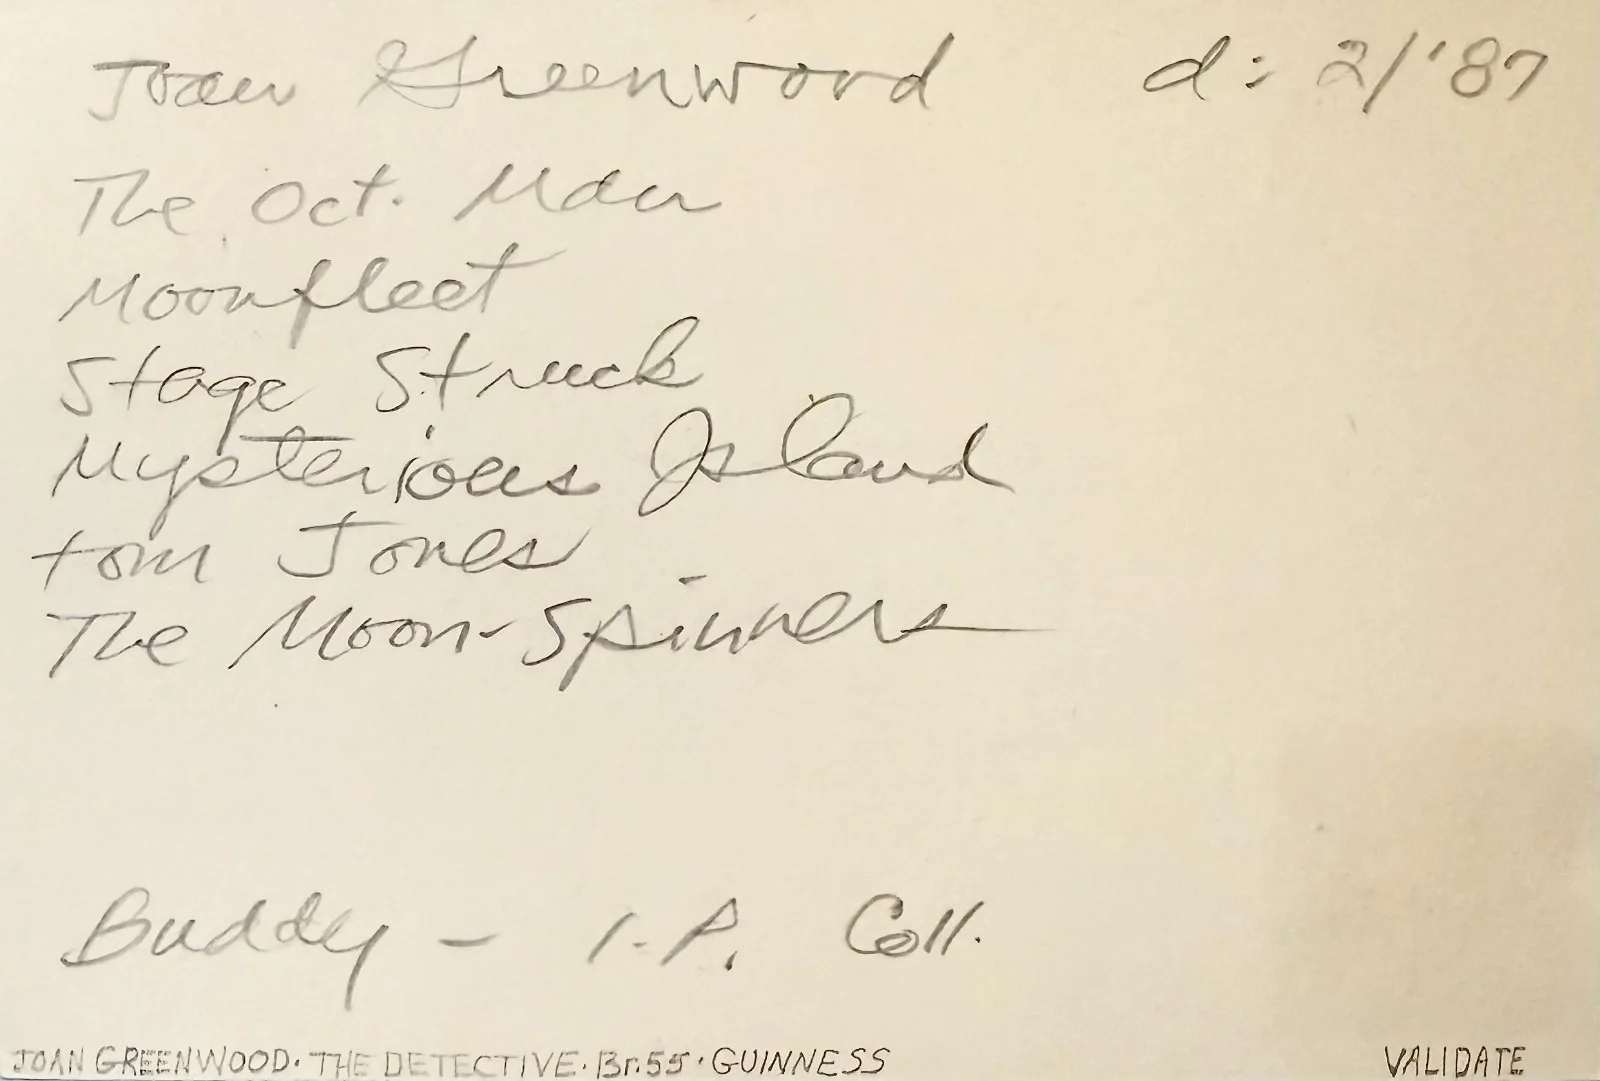 Joan Greenwood d: 2/'87
The Oct. Man
Moonfleet
Stage Struck
Mysterious Island
Tom Jones
The Moon-Spinners
Buddy - I.P. Coll.
JOAN GREENWOOD · THE DETECTIVE · Br.55 · GUINNESS VALIDATE